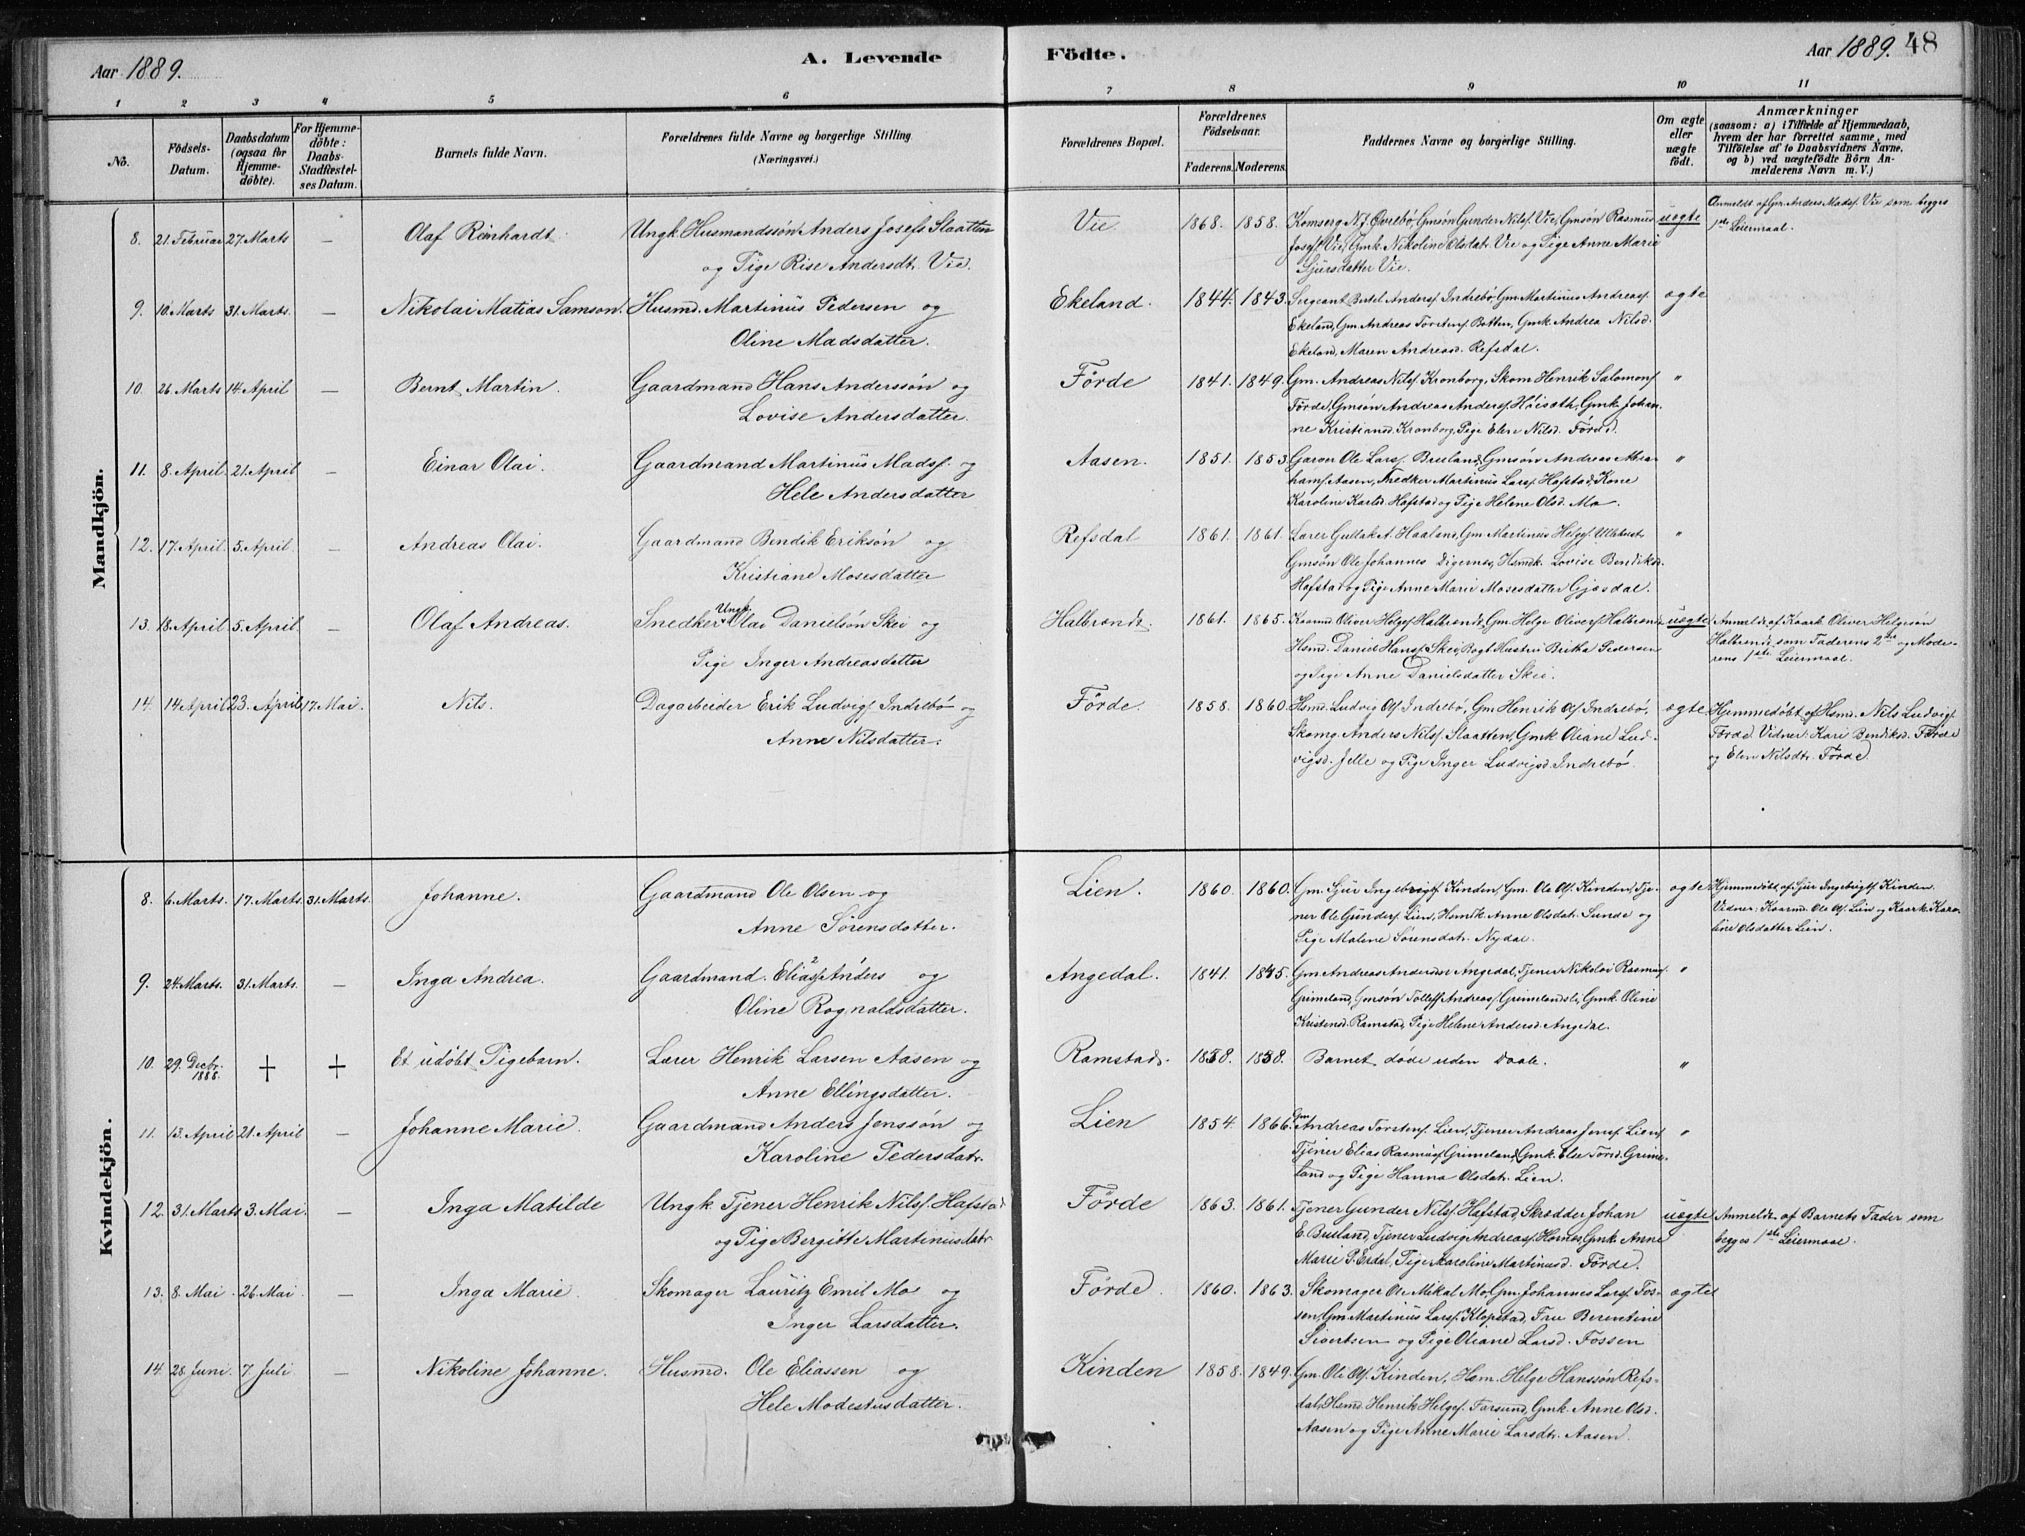 Aar 1889.
A. Levende Födte.
Aar 1889. 48
1 2 3 4 5 6 7 8 9 10 11
No.
Födsels-Datum.
Daabsdatum (ogsaa for Hjemme-döbte).
For Hjemme-döbte: Daabs-Stadfæstel-ses Datum.
Barnets fulde Navn.
Forældrenes fulde Navne og borgerlige Stilling. (Næringsvei.)
Forældrenes Bopæl.
Forældrenes Födselsaar.
Faderens. Moderens.
Faddernes Navne og borgerlige Stilling.
Om ægte eller uægte födt.
Anmærkninger (saasom: a) i Tilfælde af Hjemmedaab, hvem der har forrettet samme, med Tilföielse af to Daabsvidners Navne. og b) ved uægtefödte Börn An-melderens Navn m. V.)
Mandkjön.
8. 21. Februar 27 Marts — Olaf Reinhardt. Ungk. Husmandssön Anders Josefs. Slaatten Vie 1868. 1858. Komserg N. J. Övrebö, Gmsön Gunder Nilss. Vie, Gmsön Rasmus uægte Anmeldt af Gm. Anders Madss. Vie som begges
og Pige Rise Andersdt. Vie. Josefs. Vie, Gmk. Nikoline Olsdatr. Vie og Pige Anne Marie 1ste Leiermaal.
Sjursdatter Vie.
9. 10. Marts 31. Marts. — Nikolai Matias Samson. Husmd. Martinus Pedersen og Ekeland. 1844. 1843. Sergeant Bertel Anderss. Indrebö, Gm. Martinus Andreass. ægte
Oline Madsdatter. Ekeland, Gm. Andreas Torstens. Botten, Gmk. Andrea Nilsd.
Ekeland, Maren Andreasd. Refsdal.
10. 26. Marts 14 April — Bernt Martin. Gaardmand Hans Anderssön og Förde 1841. 1849. Gm. Andreas Nilss. Kronborg, Skom. Henrik Salomons. "
Lovise Andersdatter. Förde, Gmsön Andreas Anderss. Höisæth, Gmk. Johan-
ne Kristiansd. Kronborg, Pige Elen Nilsd. Förde.
11. 8 April. 21. April — Einar Olai. Gaardmand Martinus Madss. og Aasen. 1851. 1853. Garver Ole Larss. Bruland, Gmsön Andreas Abra- "
Hele Andersdatter hams. Aasen, Snedker Martinus Larss. Hafstad, Kone
Karoline Karlsd. Hafstad og Pige Helene Olsd. Mo.
12. 17. April. 5. April. — Andreas Olai. Gaardmand Bendik Eriksön og Refsdal 1861. 1861. Lærer Gullak A. Haaland, Gm. Martinus Helges. Ulltveit, "
Kristiane Mosesdatter Gmsön Ole Johannes Digernes, Hsmdk. Lovise Bendiksd.
Hafstad og Pige Anne Marie Mosesdatter Gjösdal.
13. 18. April. 5. April. — Olaf Andreas. Snedker Ungk. Olai Danielsön Skei og Halbrendt. 1861. 1865. Kaarmd. Oliver Helges. Halbrendt, Gm. Helge Olivers. Halbrend, uægte Anmeldt af Kaark. Oliver Helgesön
Pige Inger Andreasdatter Hsmd. Daniel Hanss. Skei, Bogt. Hustru Britha Pedersen Halbrendt som Faderens 2den og Mode-
og Pige Anne Danielsdatter Skei. rens 1ste Leiermaal.
14. 14 April 23. April 17. Mai. Nils. Dagarbeider Erik Ludvigs. Indrebö og Förde. 1858. 1860. Hsmd. Ludvig Ols. Indrebö, Gm. Henrik Ols. Indrebö, ægte Hjemmedöbt af Hsmd. Nils Ludvigs.
Anne Nilsdatter. Skomg. Anders Nilss. Slaatten, Gmk. Oliane Lud- Förde. Vidner: Kari Bendiksd. Förde
vigsd. Jelle og Pige Inger Ludvigsd. Indrebö. og Elen Nilsdtr. Förde.
Kvindekjön.
8. 6. Marts. 17. Marts. 31. Marts. Johanne. Gaardmand Ole Olsen og Lien. 1860. 1860. Gm. Sjur Ingebrigts. Kinden, Gm. Ole Ols. Kinden, Tje- ægte Hjemmedöbt af Sjur Ingebrigts. Kinden.
Anne Sörensdatter. ner Ole Gunders. Lien, Hsmdk. Anne Olsdatr. Sunde og Vidner: Kaarmd. Ole Ols. Lien og Kaark. Karo-
Pige Malene Sörensdatr. Nydal. line Olsdatter Lien.
9. 24. Marts. 31. Marts. — Inga Andrea. Gaardmand. Elias Anders og Angedal. 1841. 1845. Gm. Andreas Andersen Angedal, Tjener Nikolai Rasmuss. "
Oline Rognaldsdatter. Grimeland, Gmsön Tollef Andreass. Grimelandsli, Gmk. Oline
Kristensd. Ramstad, Pige Helene Andersd. Angedal.
10. 29. Decbr. 1888. + + Et udöbt Pigebarn. Lærer Henrik Larsen Aasen og Ramstad. 1858. 1858. Barnet döde uden Daab. "
Anne Ellingsdatter.
11. 13. April 21. April — Johanne Marie. Gaardmand Anders Jenssön og Lien 1854. 1866. Gm. Andreas Torstens. Lien, Tjener Andreas Jenss. Lien, "
Karoline Pedersdatr. Tjener Elias Rasmuss. Grimeland, Gmk. Else Törrisd. Grime-
land og Pige Hanna Olsdatr. Lien.
12. 31. Marts 3. Mai. — Inga Matilde Ungk. Tjener Henrik Nilss. Hafstad Förde 1863. 1861. Tjener Gunder Nilss. Hafstad, Skrædder Johan uægte Anmeldt af Barnets Fader som
og Pige Bergitte Martinusdatr. E. Bruland, Tjener Ludvig Andreass. Hornes, Gmk. Anne begges 1ste Leiermaal.
Marie P. Erdal, Pige Karoline Martinusd. Förde.
13. 8. Mai. 26. Mai. — Inga Marie. Skomager Lauritz Emil Mo og Förde 1860. 1863. Skomager Ole Mikal Mo, Gm. Johannes Larss. Fos- ægte
Inger Larsdatter. sen, Gm. Martinus Larss. Klopstad, Fru Berentine
Sivertsen og Pige Oliane Larsd. Fossen
14. 28. Juni. 7. Juli — Nikoline Johanne. Husmd. Ole Eliassen og Kinden 1858. 1849. Gm. Ole Ols. Kinden, Hsm. Helge Hanssön Refs-
Hele Modestusdatter. dal, Hsmd. Henrik Helges. Farsund, Gmk. Anne Olsd.
Aasen og Pige Anne Marie Larsdtr. Aasen.